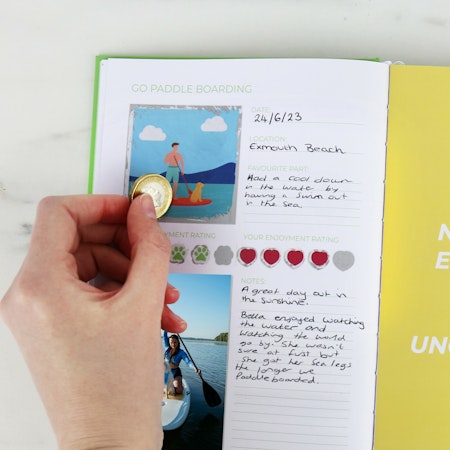 GO PADDLE BOARDING
DATE
24/6/23
LOCATION:
Exmouth Beach
FAVOURITE PART:
Had a cool down
in the water by
having a swim out
in the sea.
YMENT RATING
YOUR ENJOYMENT RATING
NOTES:
A great day out in
the sunshine.
Bella enjoyed watching
the water and
watching the world
go by. She wasn't
sure at first but
she got her sea legs
the longer we
Paddleboarded.
N
E
UNC